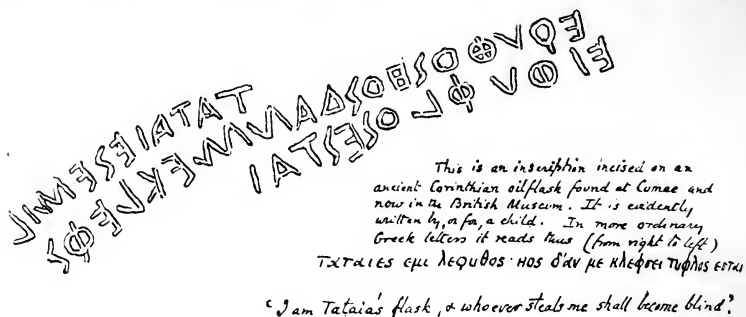 ΤΑΤΑΙΕSΕΜΙΛ
ΕϘVΘΟSΗΟSΔΑΝΜΕΚΛΕΦS
ΕΙΘVΦΛΟSΕSΤΑΙ
This is an inscription incised on an
ancient Corinthian oilflask found at Cumae and
now in the British Museum. It is evidently
written by, or for, a child. In more ordinary
Greek letters it reads thus (from right to left)
Τατaιες εμι λεϙυθος · hος δ'άν με κλεφσει τυφλος εσται
'I am Tataia's flask, & whoever steals me shall become blind'.